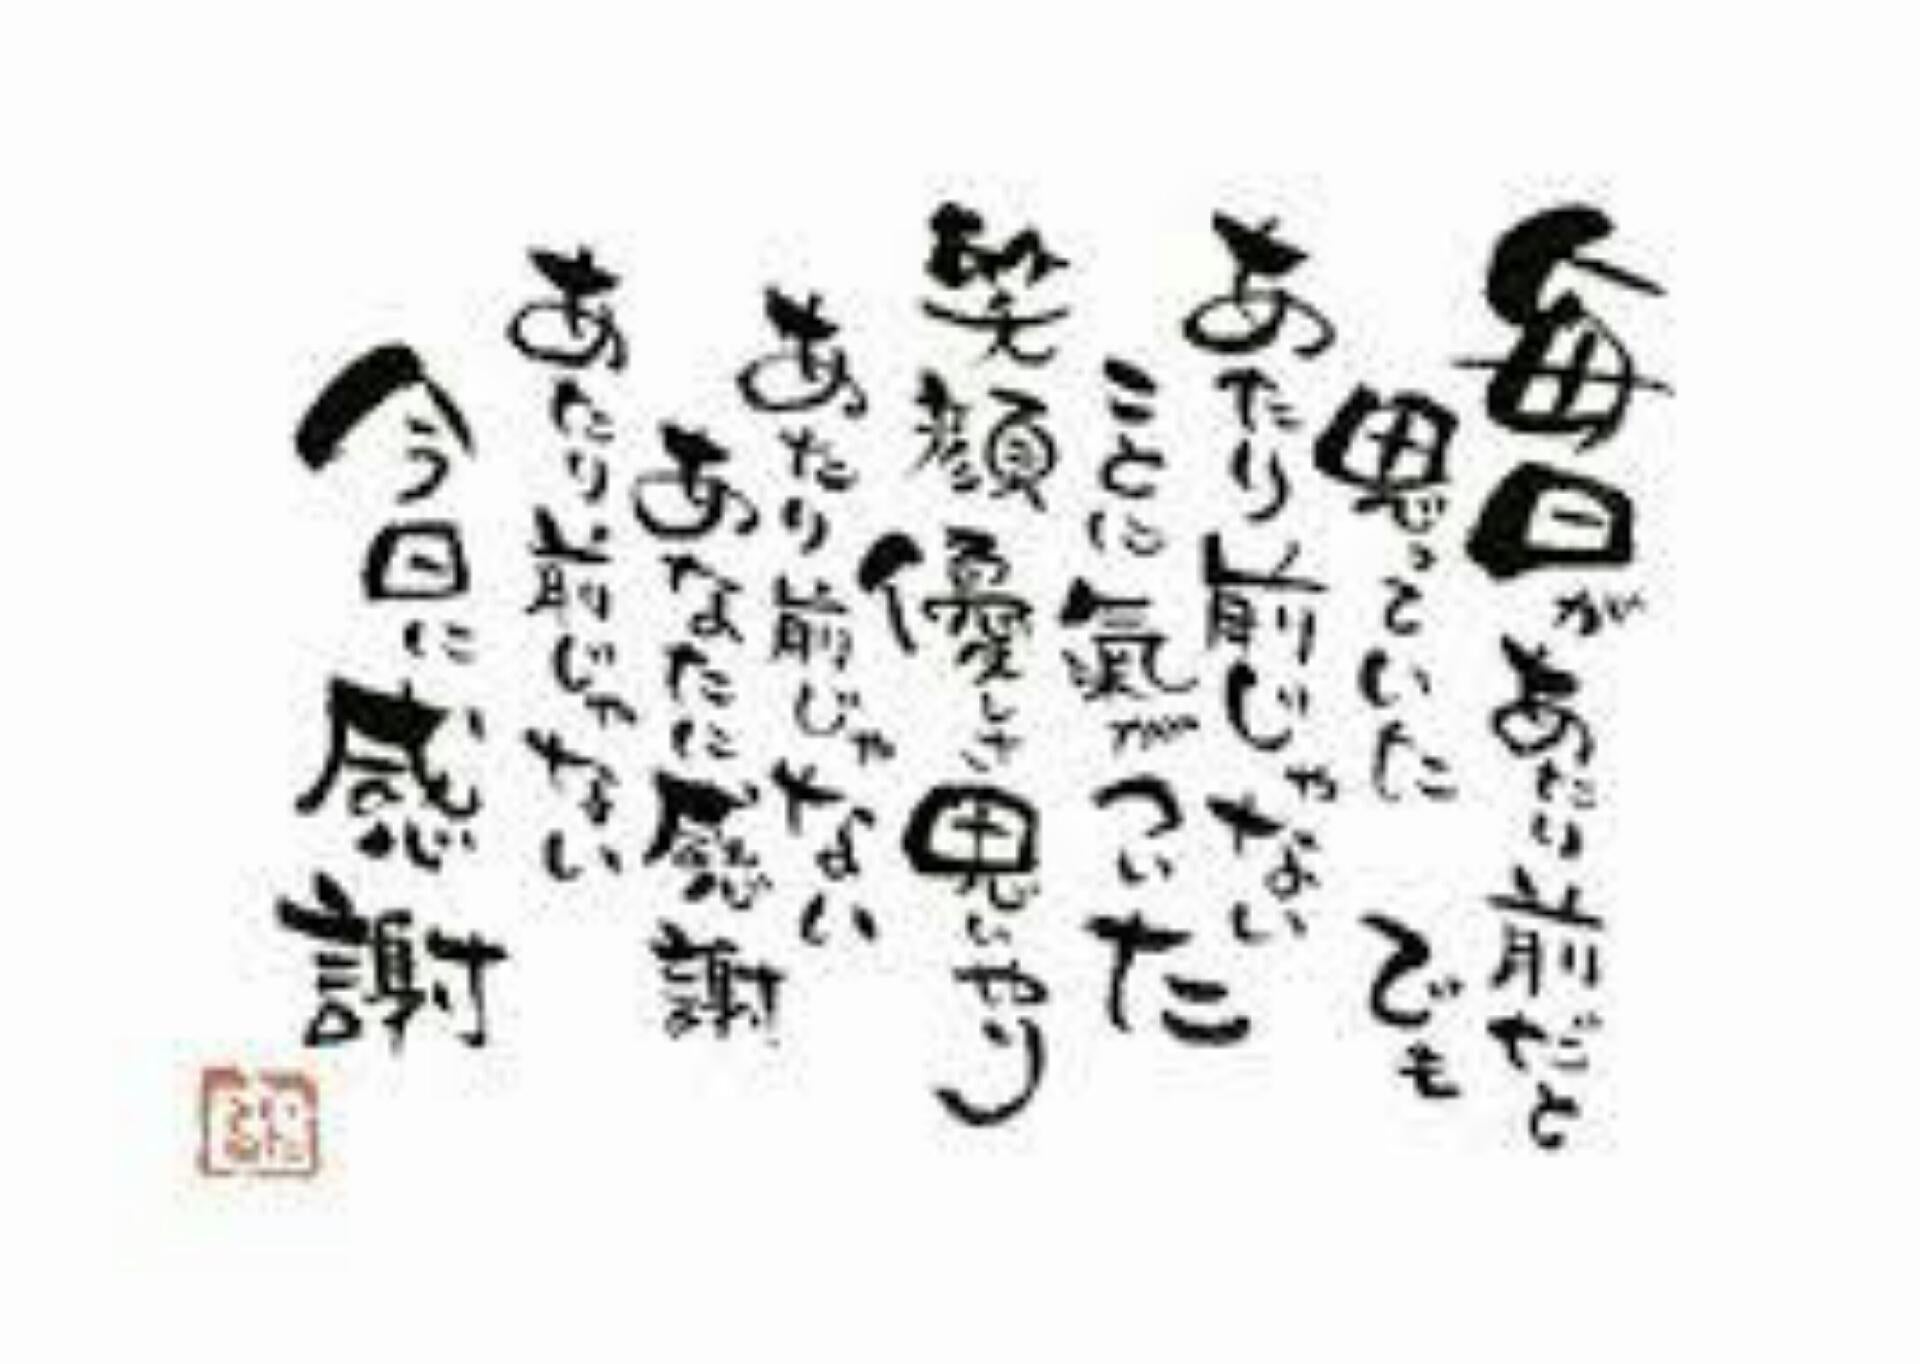 毎日があたり前だと
思っていた でも
あたり前じゃない
ことに氣がついた
笑顔優しさ思いやり
あたり前じゃない
あなたに感謝
あたり前じゃない
今日に感謝